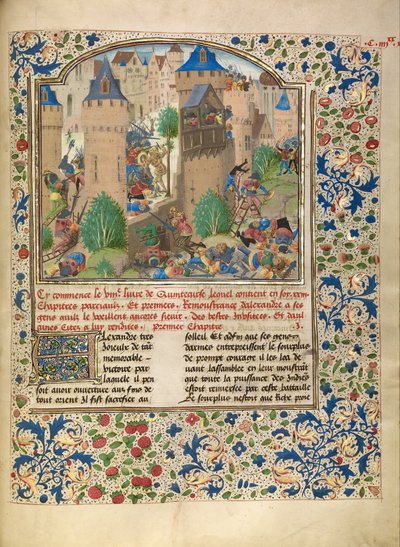 Cy commence le viiie liure de Quintcurse lequel contient en soy. xxiiii
chapitres parciaulx. Et premiers. Remonstrance dalexandre a ses
gens quilz le vueillent ancores sieuir. Des bestes
aines citez a luy rendues. premier chapitre
Alexandre tres
ioieulx de tat
memorable
victoire par
laquele il pen
soit auoir ouuerture aux fins de
tout orient il fist sacrefier au
soleil Et adfin que ses gens
darmes entrepreissent le sourplus
de prompt courage il les loa de
uant lassamblee en leur monstrat
que toute la puissance des Indiens
estoit reuersee par ceste bataille
Le sourplus nestoit que riche proie